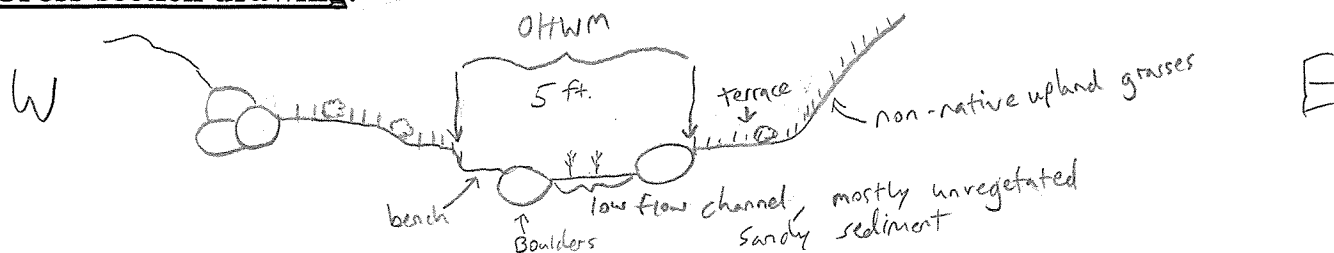 Cross section drawing:
OHWM
W
E
5 ft.
terrace
non-native upland grasses
bench
Boulders
low flow channel, mostly unvegetated
sandy sediment